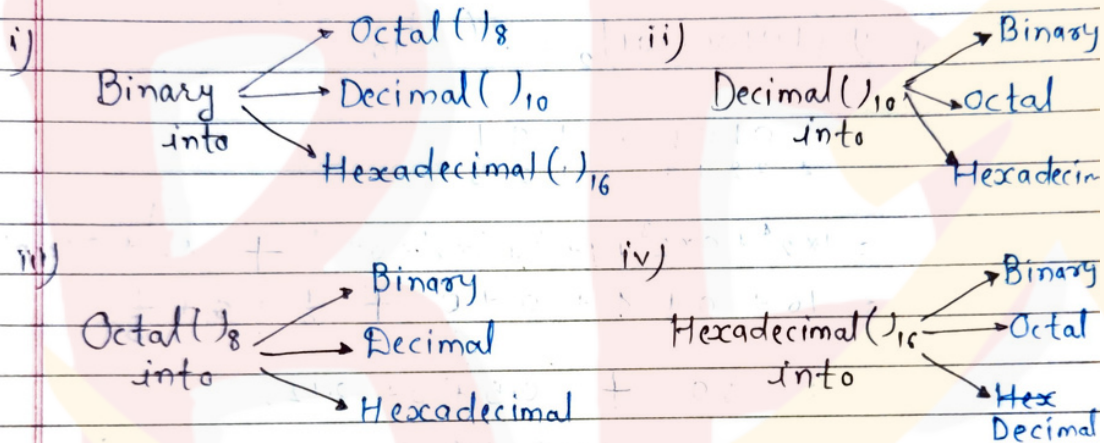 i) Binary into
Octal ( )8
Decimal ( )10
Hexadecimal ( )16
ii) Decimal ( )10 into
Binary
Octal
Hexadecim
iii) Octal ( )8 into
Binary
Decimal
Hexadecimal
iv) Hexadecimal ( )16 into
Binary
Octal
Hex
Decimal